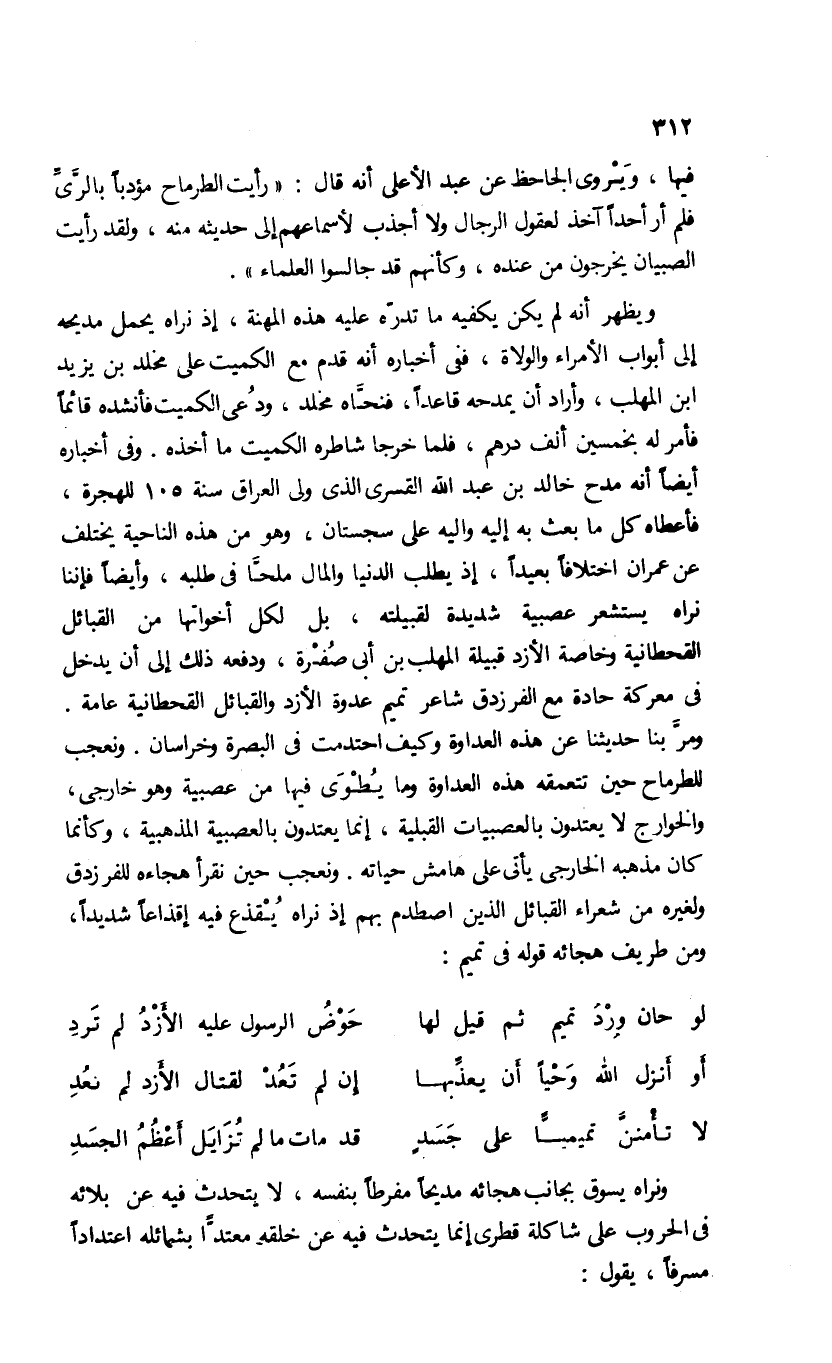 ٣١٢
فيها ، وَيَرْوى الجاحظ عن عبد الأعلى أنه قال : « رأيت الطرماح مؤدباً بالرَّىِّ
فلم أر أحداً آخذ لعقول الرجال ولا أجذب لأسماعهم إلى حديثه منه ، ولقد رأيت
الصبيان يخرجون من عنده ، وكأنهم قد جالسوا العلماء » .
ويظهر أنه لم يكن يكفيه ما تدرّه عليه هذه المهنة ، إذ نراه يحمل مديحه
إلى أبواب الأمراء والولاة ، ففى أخباره أنه قدم مع الكميت على مخلد بن يزيد
ابن المهلب ، وأراد أن يمدحه قاعداً ، فنحَّاه مخلد ، ودُعى الكميت فأنشده قائماً
فأمر له بخمسين ألف درهم ، فلما خرجا شاطره الكميت ما أخذه . وفى أخباره
أيضاً أنه مدح خالد بن عبد الله القسرى الذى ولى العراق سنة ١٠٥ للهجرة ،
فأعطاه كل ما بعث به إليه واليه على سجستان ، وهو من هذه الناحية يختلف
عن عمران اختلافاً بعيداً ، إذ يطلب الدنيا والمال ملحًّا فى طلبه ، وأيضاً فإننا
نراه يستشعر عصبية شديدة لقبيلته ، بل لكل أخواتها من القبائل
القحطانية وخاصة الأزد قبيلة المهلب بن أبى صُفْرة ، ودفعه ذلك إلى أن يدخل
فى معركة حادة مع الفرزدق شاعر تميم عدوة الأزد والقبائل القحطانية عامة .
ومرَّ بنا حديثنا عن هذه العداوة وكيف احتدمت فى البصرة وخراسان . ونعجب
للطرماح حين تتعمقه هذه العداوة وما يُطْوَى فيها من عصبية وهو خارجى،
والخوارج لا يعتدون بالعصبيات القبلية ، إنما يعتدون بالعصبية المذهبية ، وكأنما
كان مذهبه الخارجى يأتى على هامش حياته . ونعجب حين نقرأ هجاءه للفرزدق
ولغيره من شعراء القبائل الذين اصطدم بهم إذ نراه يُقْذع فيه إقذاعاً شديداً،
ومن طريف هجائه قوله فى تميم :
لو حان وِرْدُ تميم ثم قيل لها حَوْضُ الرسول عليه الأَزْدُ لم تَرِدِ
أو أنزل الله وَحْياً أن يعذِّبها إن لم تَعُدْ لقتال الأَزد لم نعُدِ
لا تأْمننَّ تميميًّا على جَسَدٍ قد مات ما لم تُزَايَل أَعْظُمُ الجسَدِ
ونراه يسوق بجانب هجائه مديحاً مفرطاً بنفسه ، لا يتحدث فيه عن بلائه
فى الحروب على شاكلة قطرى إنما يتحدث فيه عن خلقه معتدًّا بشمائله اعتداداً
مسرفاً ، يقول :